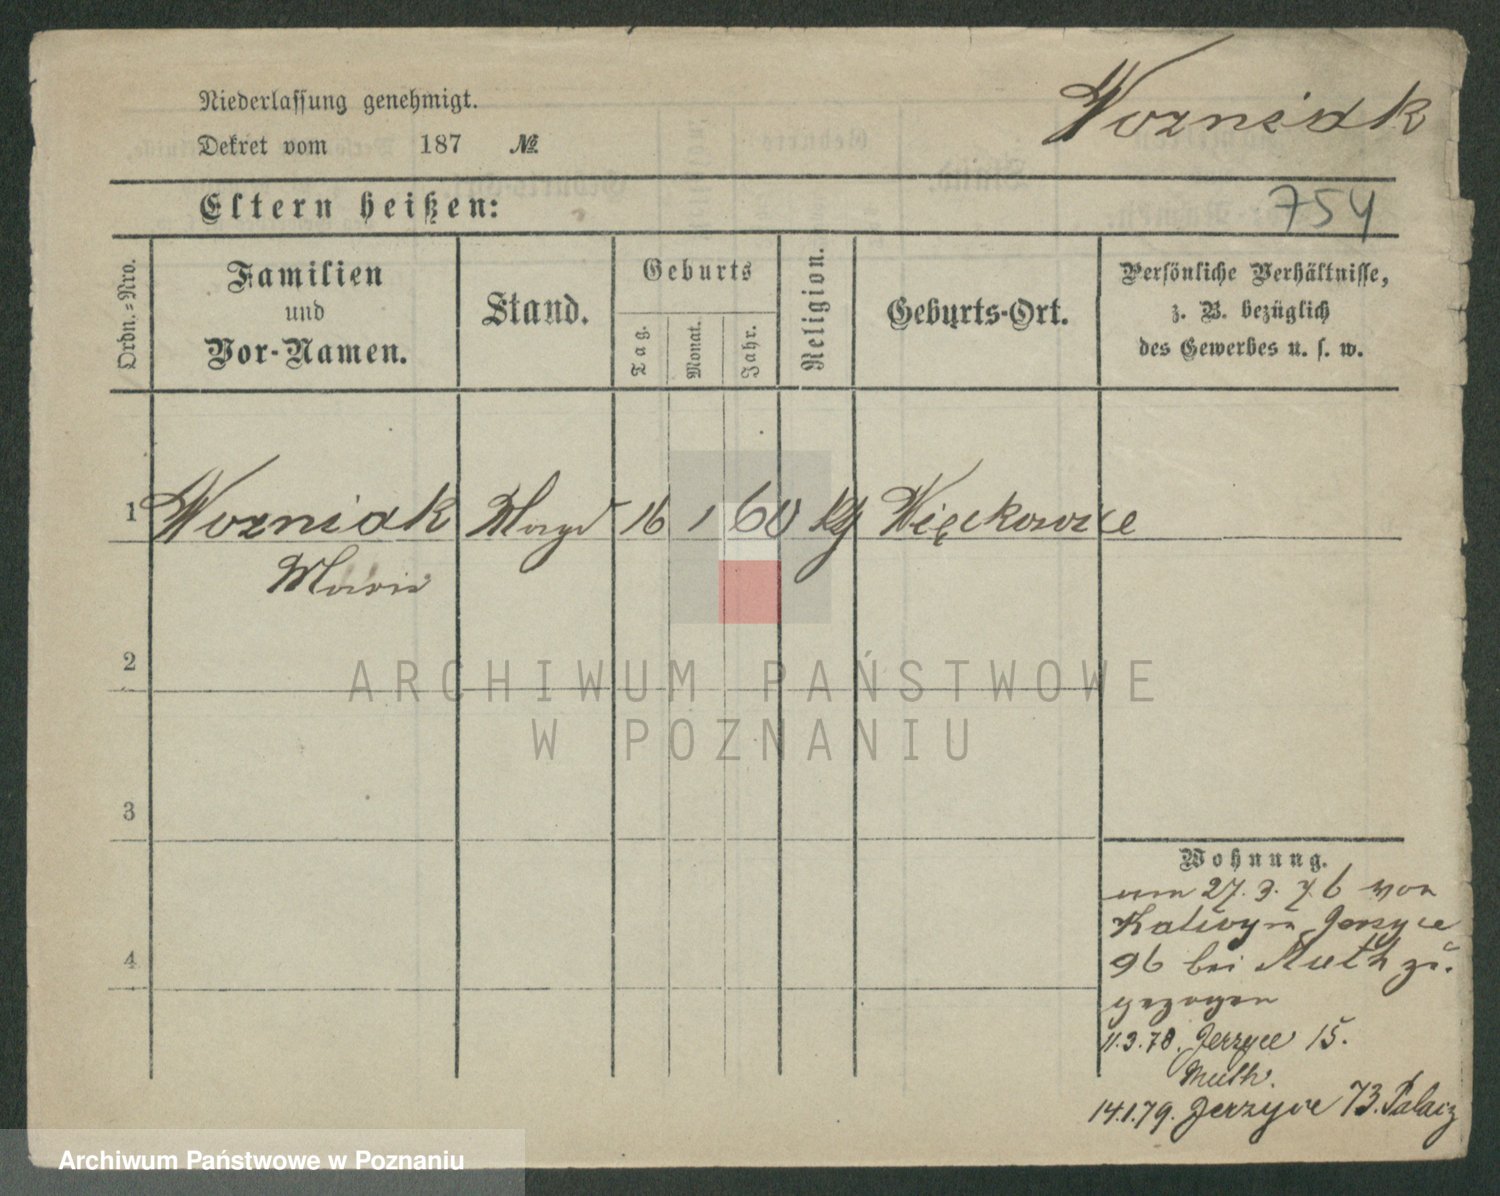 Wozniak
Niederlassung genehmigt.
Dekret vom 187 №
754
Eltern heißen:
Ordn.=Nro.
Familien
und
Vor-Namen.
Stand.
Geburts
Tag.
Monat.
Jahr.
Religion.
Geburts-Ort.
Persönliche Verhältnisse,
z. B. bezüglich
des Gewerbes u. s. w.
1 Wozniak Magd 16 1 60 Więckowice
Marie
2
3
4
Wohnung.
am 27. 3. 76 von
Jerzyce
96 bei Muth zu-
gezogen
11.3.78. Jerzyce 15.
Muth.
14.1.79. Jerzyce 73. Palacz
ARCHIWUM PAŃSTWOWE
W POZNANIU
Archiwum Państwowe w Poznaniu